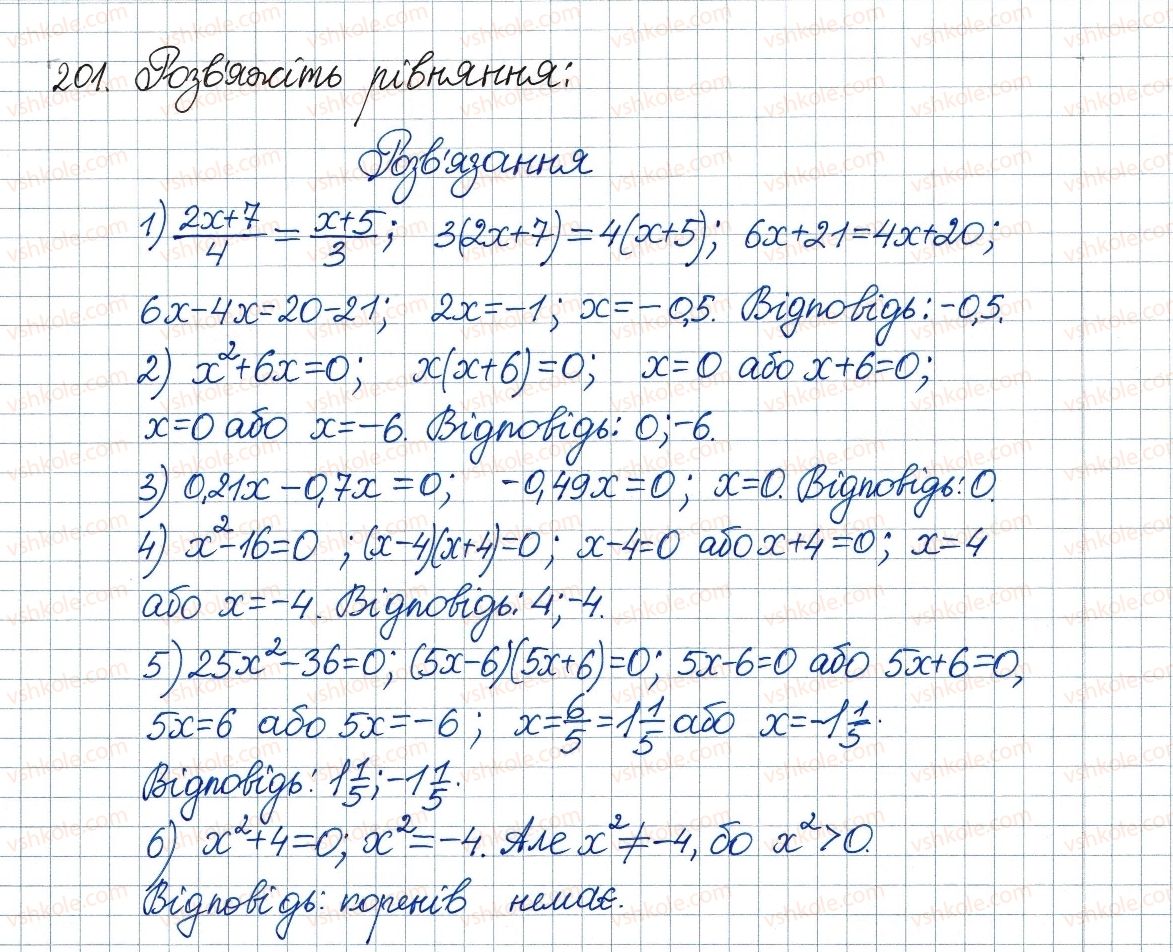 201. Розв'яжіть рівняння:
Розв'язання
1) (2x+7)/4 = (x+5)/3; 3(2x+7)=4(x+5); 6x+21=4x+20;
6x-4x=20-21; 2x=-1; x=-0,5. Відповідь: -0,5.
2) x²+6x=0; x(x+6)=0; x=0 або x+6=0;
x=0 або x=-6. Відповідь: 0; -6.
3) 0,21x-0,7x=0; -0,49x=0; x=0. Відповідь: 0.
4) x²-16=0; (x-4)(x+4)=0; x-4=0 або x+4=0; x=4
або x=-4. Відповідь: 4; -4.
5) 25x²-36=0; (5x-6)(5x+6)=0; 5x-6=0 або 5x+6=0,
5x=6 або 5x=-6; x=6/5=1 1/5 або x=-1 1/5.
Відповідь: 1 1/5; -1 1/5.
6) x²+4=0; x²=-4. Але x²≠-4, бо x²>0.
Відповідь: коренів немає.
vshkole.com